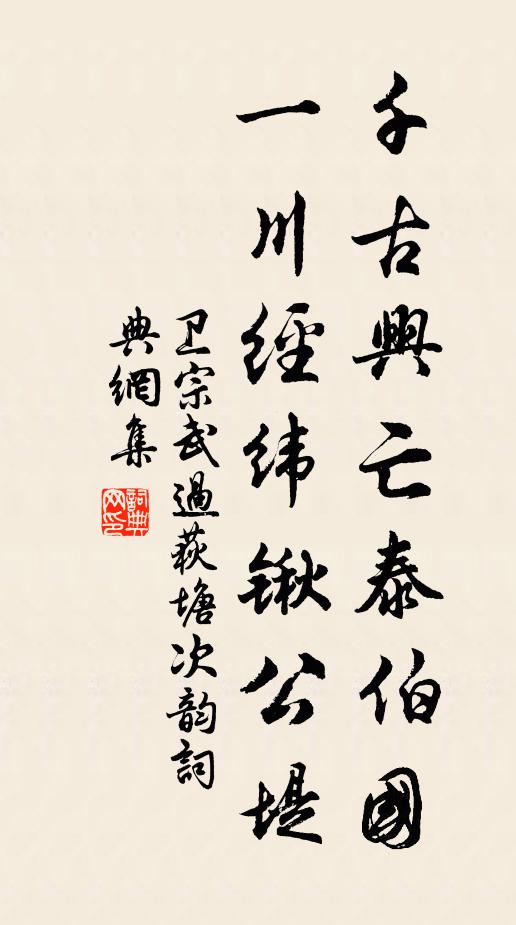 千古興亡泰伯國
一川經纬锹公堤
卫宗武過荻塘次韵詞
典網集
詞典网印